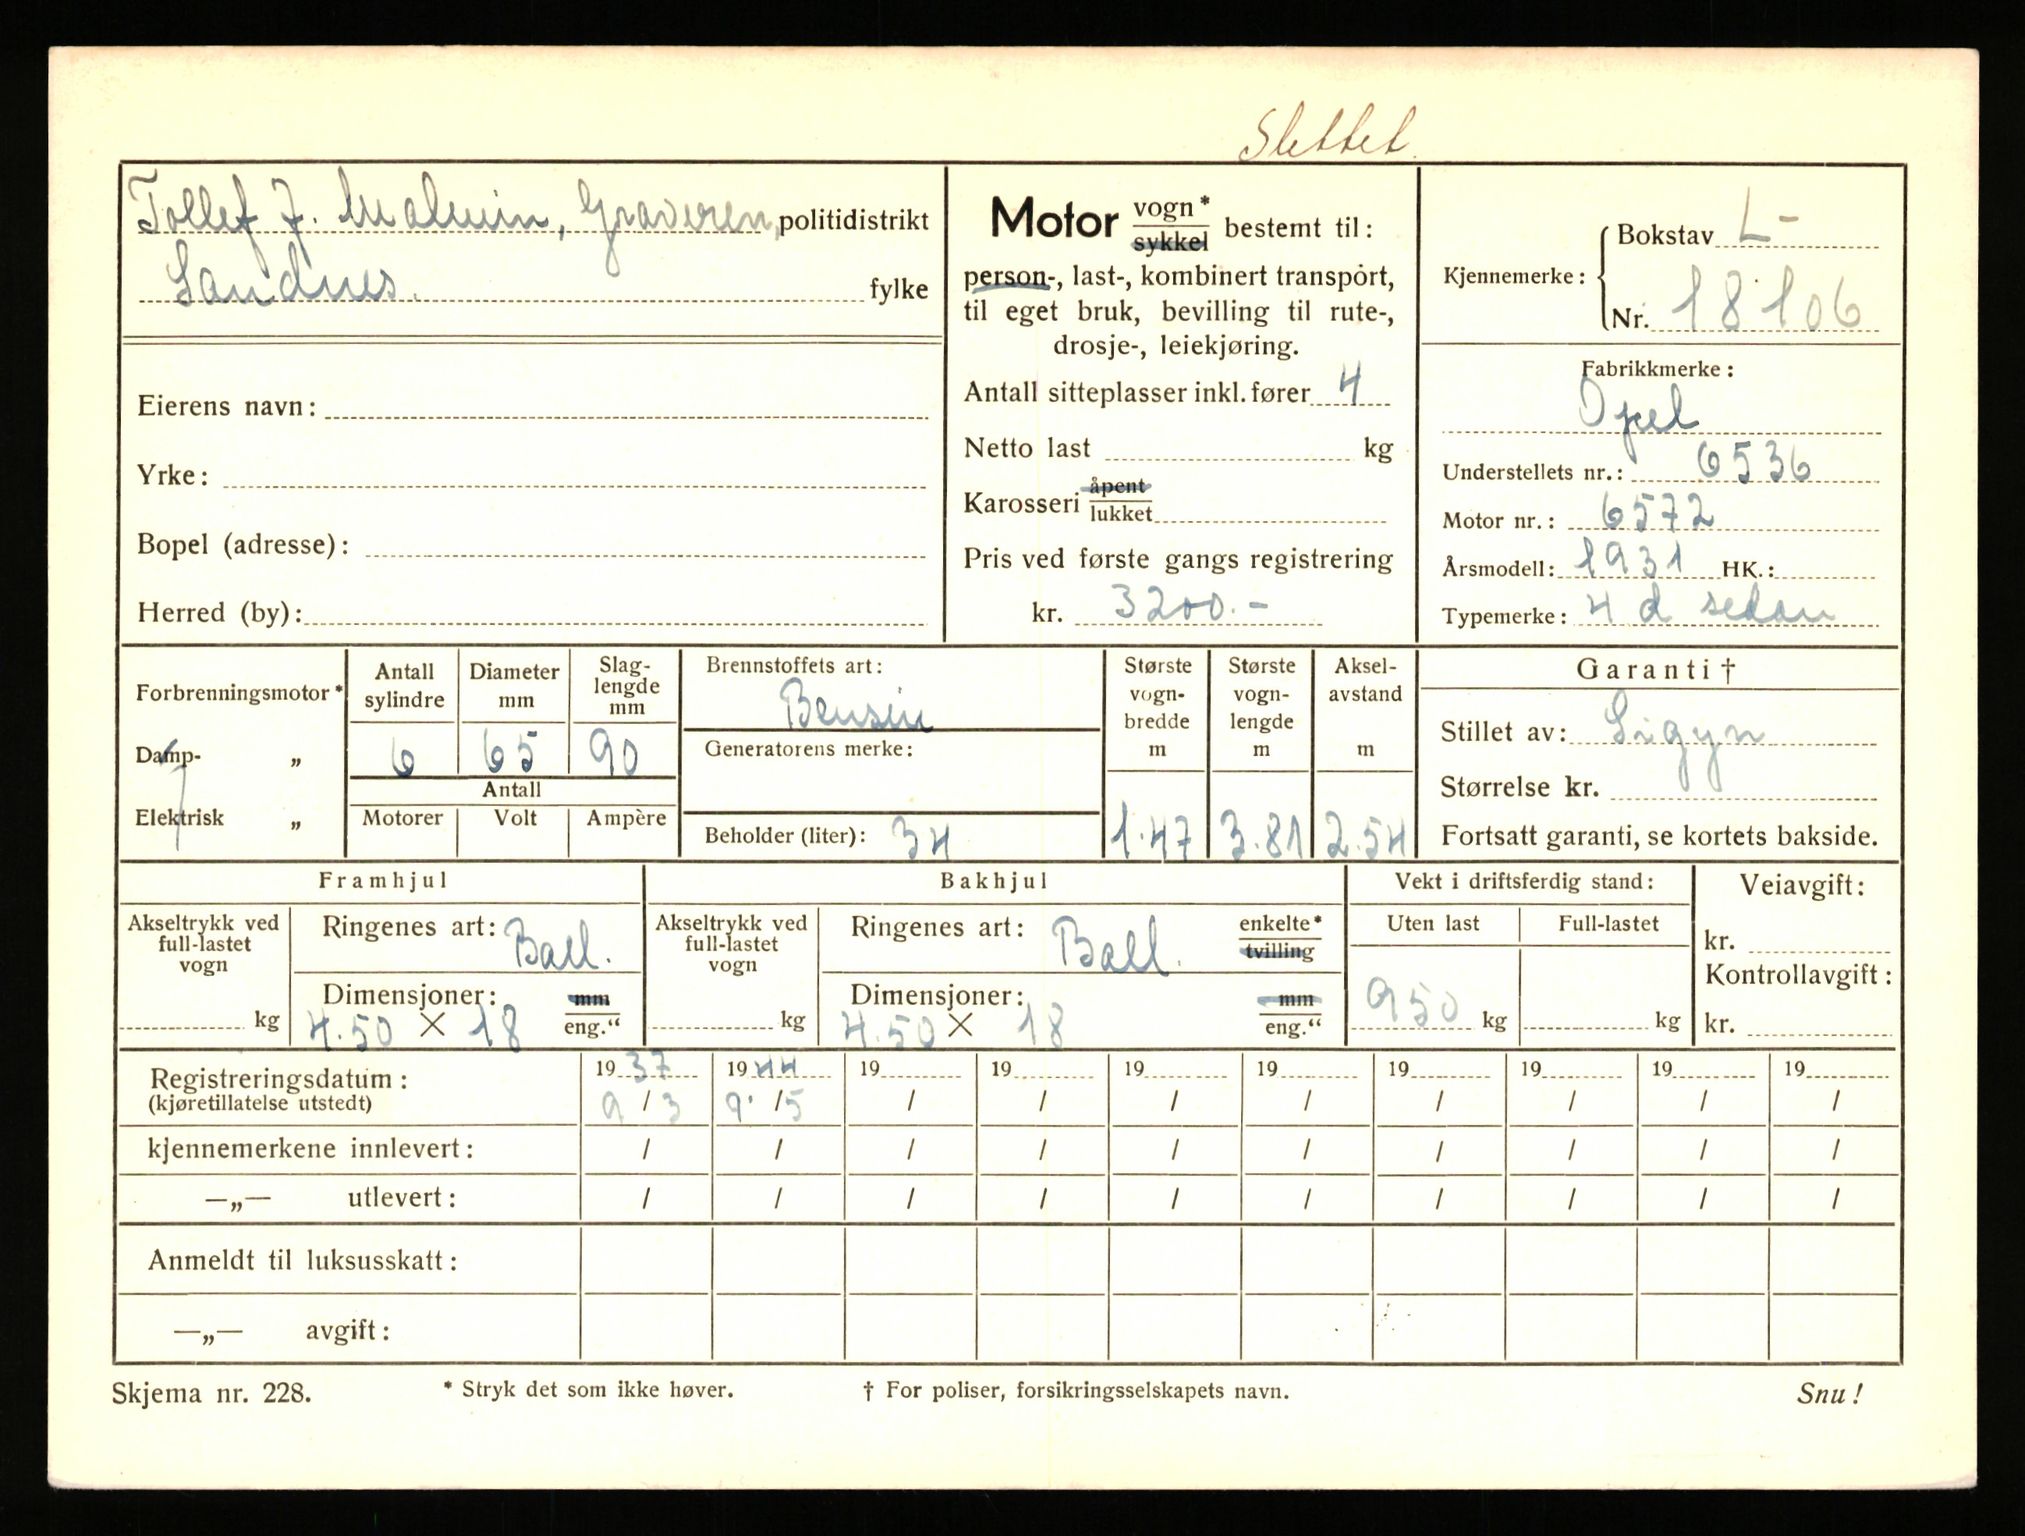 Slettet.
Tollef J. Malmin, Graveren, politidistrikt
Sandnes. fylke
Eierens navn:
Yrke:
Bopel (adresse):
Herred (by):
Motor vogn* sykkel bestemt til:
person-, last-, kombinert transport,
til eget bruk, bevilling til rute-,
drosje-, leiekjøring.
Antall sitteplasser inkl. fører 4
Netto last kg
Karosseri åpent lukket
Pris ved første gangs registrering
kr. 3200.-
Kjennemerke: Bokstav L-
Nr. 18106
Fabrikkmerke:
Opel
Understellets nr.: 6536
Motor nr.: 6572
Årsmodell: 1931 HK.:
Typemerke: 4 d sedan
Forbrenningsmotor*
Damp- „
Elektrisk „
Antall sylindre 6
Diameter mm 65
Slag-lengde mm 90
Antall
Motorer Volt Ampère
Brennstoffets art:
Bensin
Generatorens merke:
Beholder (liter): 34
Største vogn-bredde m 1.47
Største vogn-lengde m 3.81
Aksel-avstand m 2.54
Garanti †
Stillet av: Sigyn
Størrelse kr.
Fortsatt garanti, se kortets bakside.
Framhjul
Akseltrykk ved full-lastet vogn
kg
Ringenes art: Ball.
Dimensjoner: mm
4.50 × 18 eng.“
Bakhjul
Akseltrykk ved full-lastet vogn
kg
Ringenes art: Ball. enkelte* tvilling
Dimensjoner: mm
4.50 × 18 eng.“
Vekt i driftsferdig stand:
Uten last Full-lastet
950 kg kg
Veiavgift:
kr.
Kontrollavgift:
kr.
Registreringsdatum: 1937 1944 19 19 19 19 19 19 19 19
(kjøretillatelse utstedt) 9/3 9./5 / / / / / / / /
kjennemerkene innlevert: / / / / / / / / / /
—„— utlevert: / / / / / / / / / /
Anmeldt til luksusskatt:
—„— avgift:
Skjema nr. 228. * Stryk det som ikke høver. † For poliser, forsikringsselskapets navn. Snu!